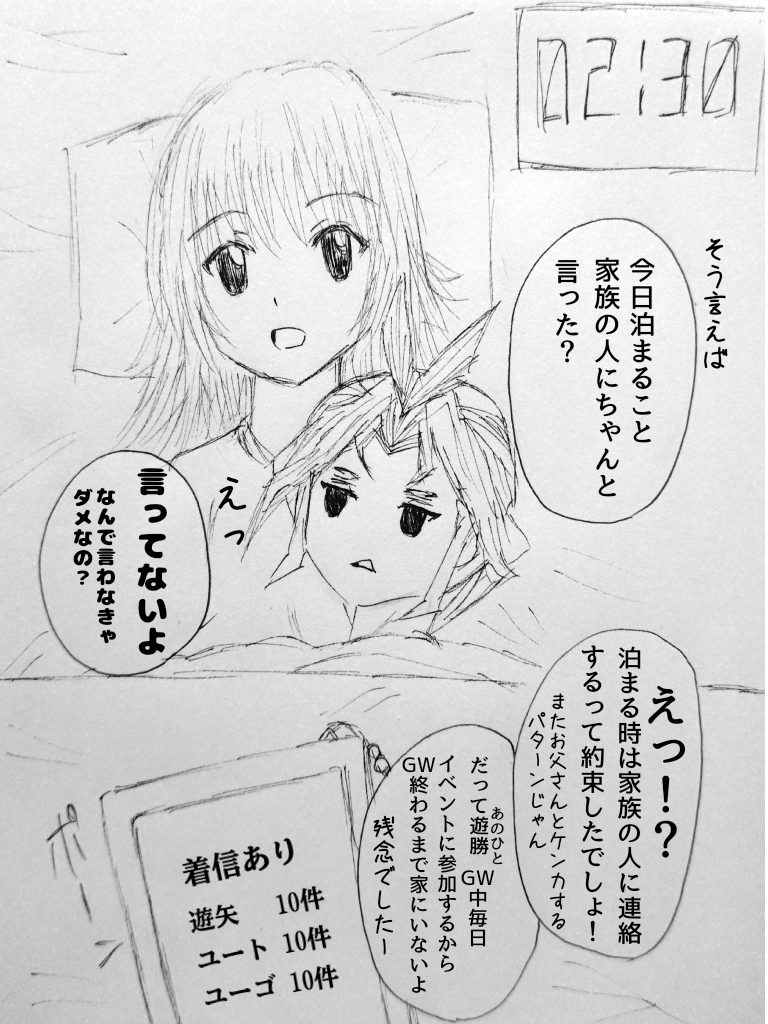 02:30
そう言えば
今日泊まること
家族の人にちゃんと
言った？
えっ
言ってないよ
なんで言わなきゃ
ダメなの？
えっ！？
泊まる時は家族の人に連絡
するって約束したでしょ！
またお父さんとケンカする
パターンじゃん
だって遊勝 GW中毎日
あのひと
イベントに参加するから
GW終わるまで家にいないよ
残念でしたー
ポーン
着信あり
遊矢 10件
ユート 10件
ユーゴ 10件